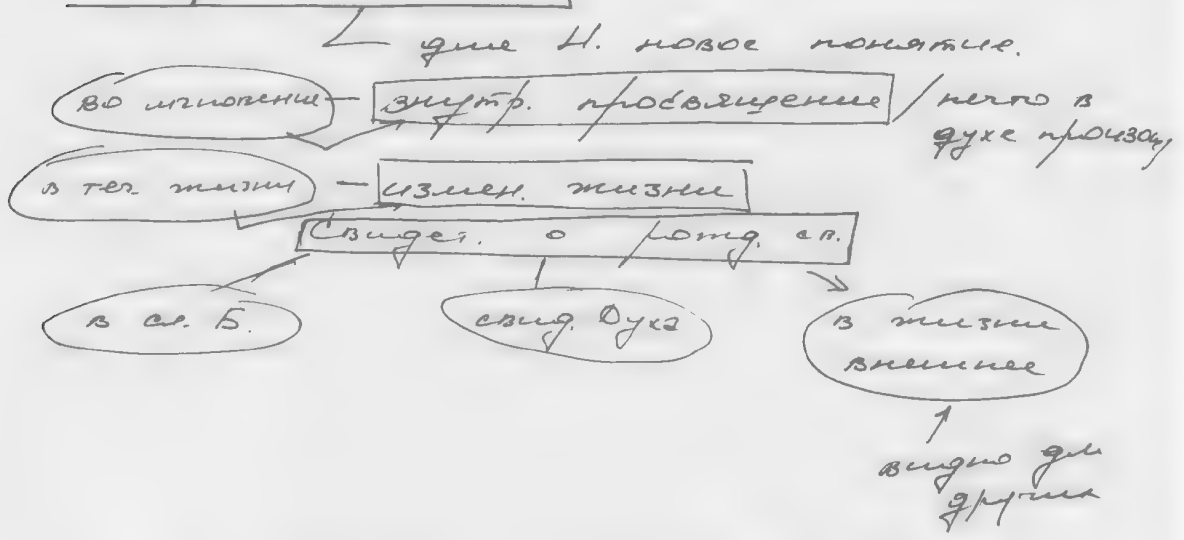 для Н. новое понятие.
во мгновение – внутр. просвящение / нечто в
духе произош,
в теч. жизни – измен. жизни
Свидет. о рожд. св.
в сл. Б.
свид. Духа
в жизни
внешнее
видно для
других